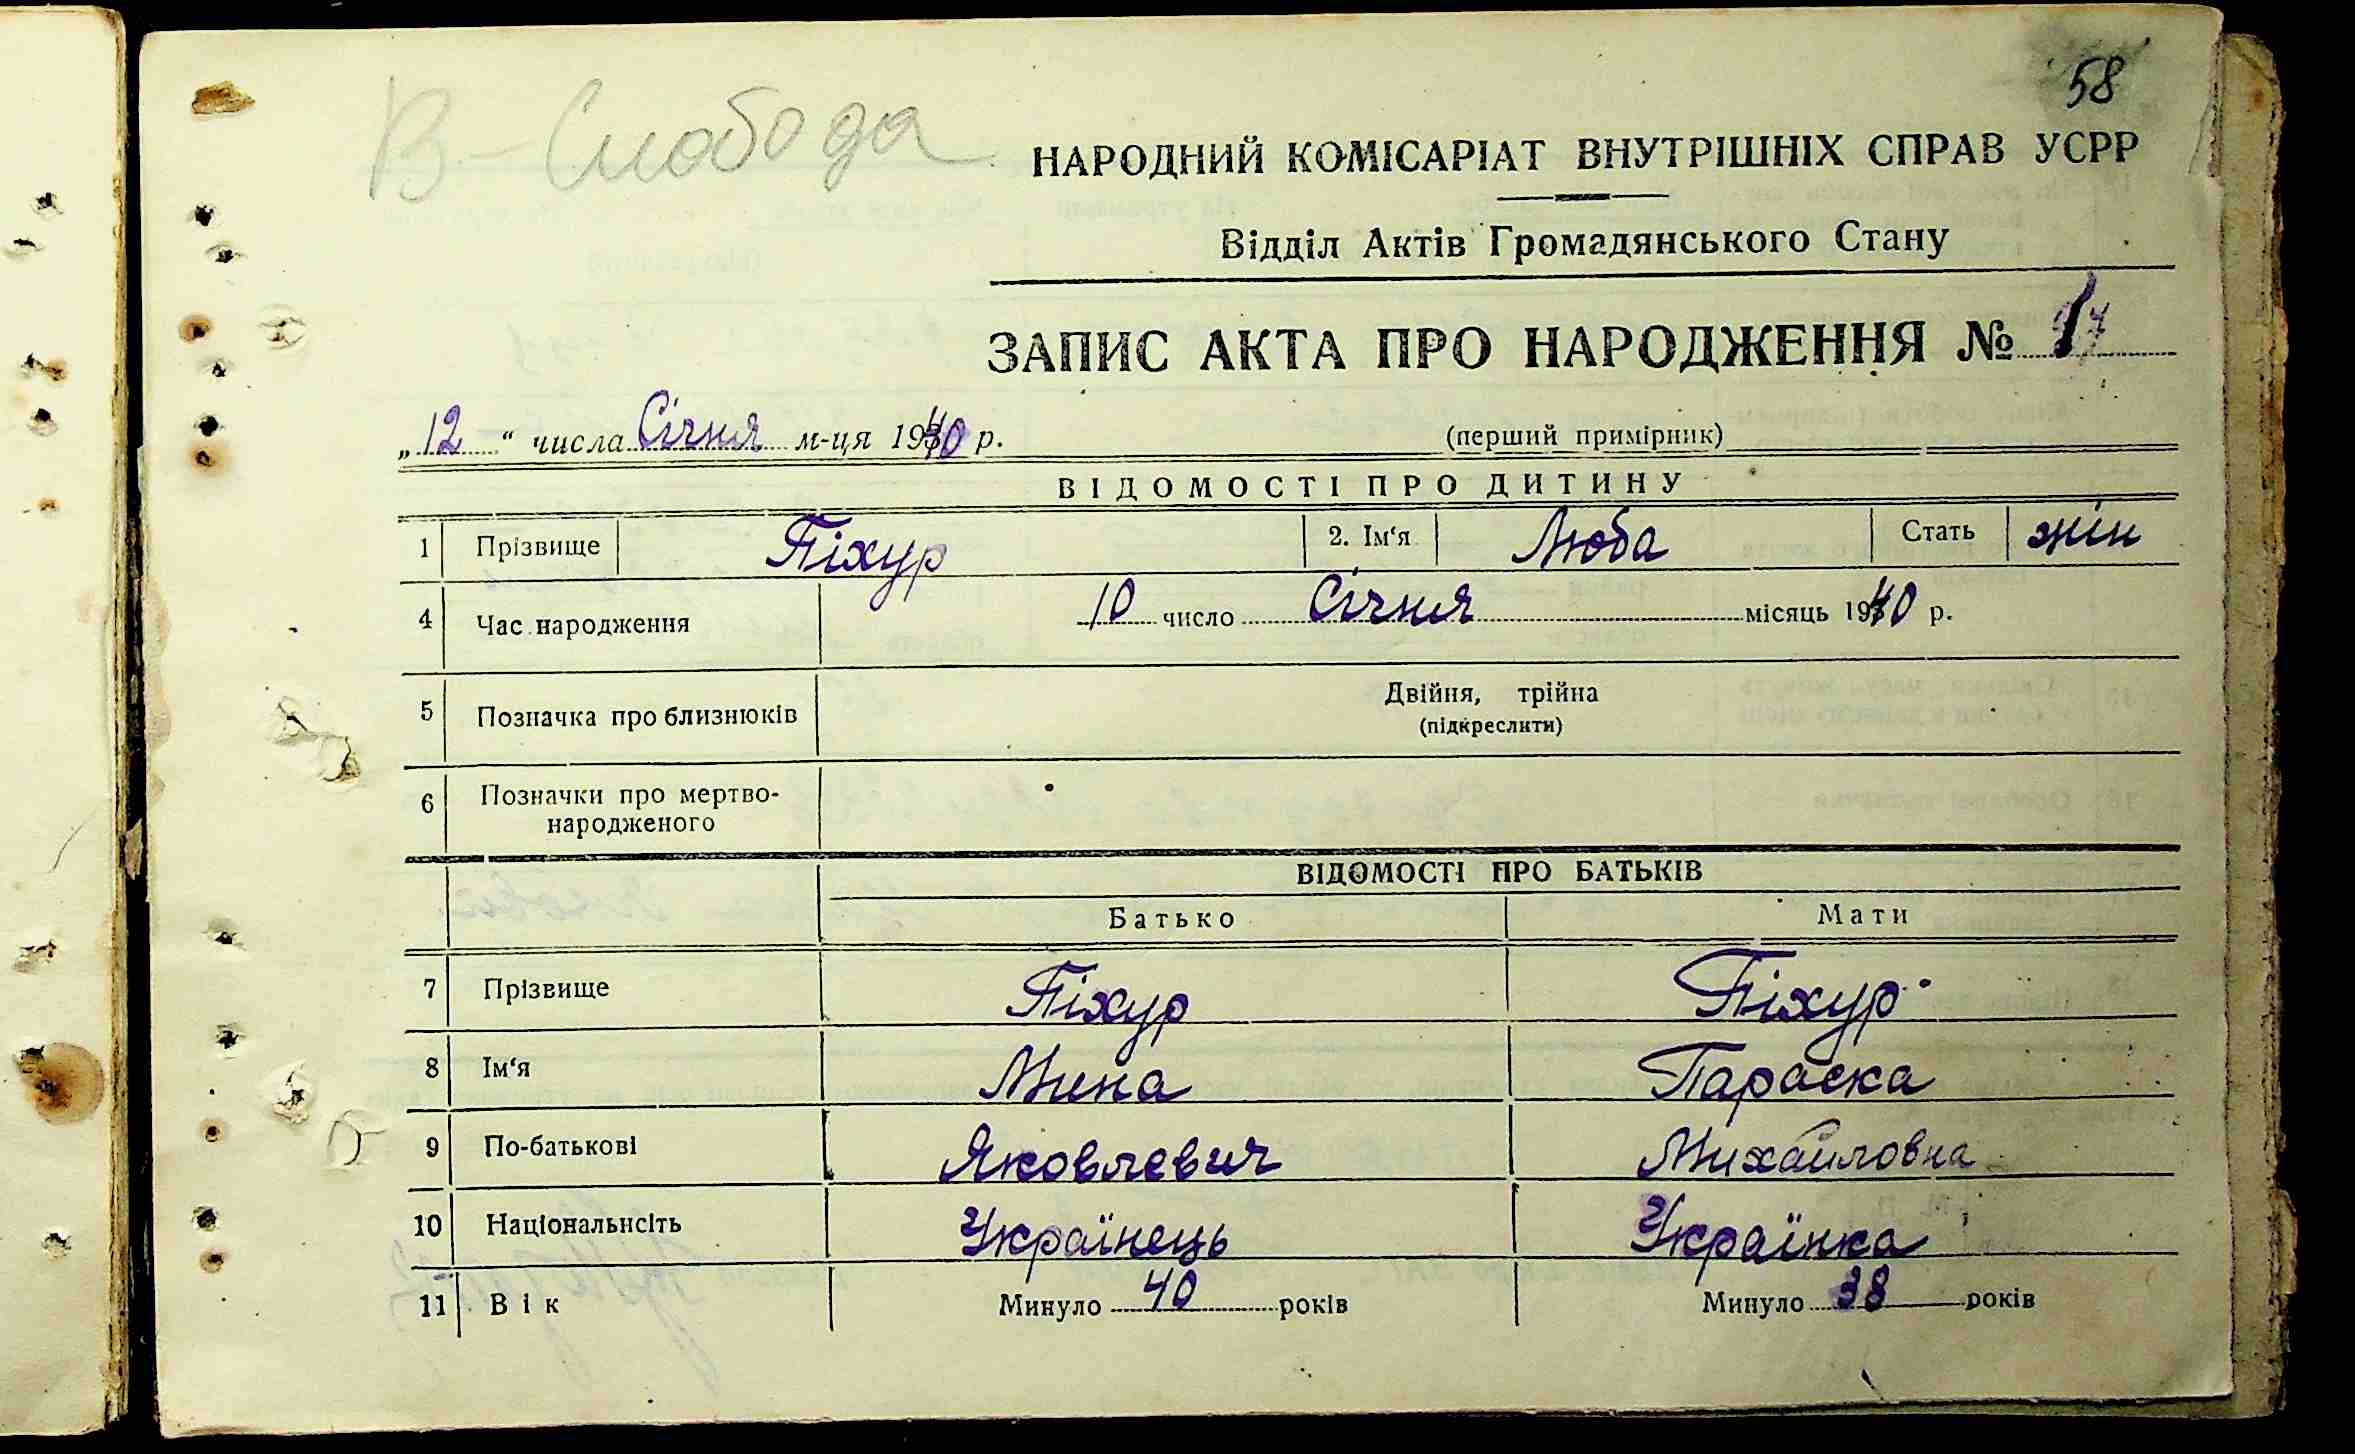 58
В-Слобода
НАРОДНИЙ КОМІСАРІАТ ВНУТРІШНІХ СПРАВ УСРР
Відділ Актів Громадянського Стану
ЗАПИС АКТА ПРО НАРОДЖЕННЯ №
„12“ числа Січня м-ця 1940 р. (перший примірник)
ВІДОМОСТІ ПРО ДИТИНУ
1 Прізвище Піхур 2. Ім'я Люба Стать жін
4 Час народження 10 число Січня місяць 1940 р.
5 Позначка про близнюків Двійня, трійна
(підкреслити)
6 Позначки про мертво-
народженого
ВІДОМОСТІ ПРО БАТЬКІВ
Батько Мати
7 Прізвище Піхур Піхур
8 Ім'я Мина Параска
9 По-батькові Яковлевич Михайловна
10 Національнсіть Українець Українка
11 Вік Минуло 40 років Минуло 38 років